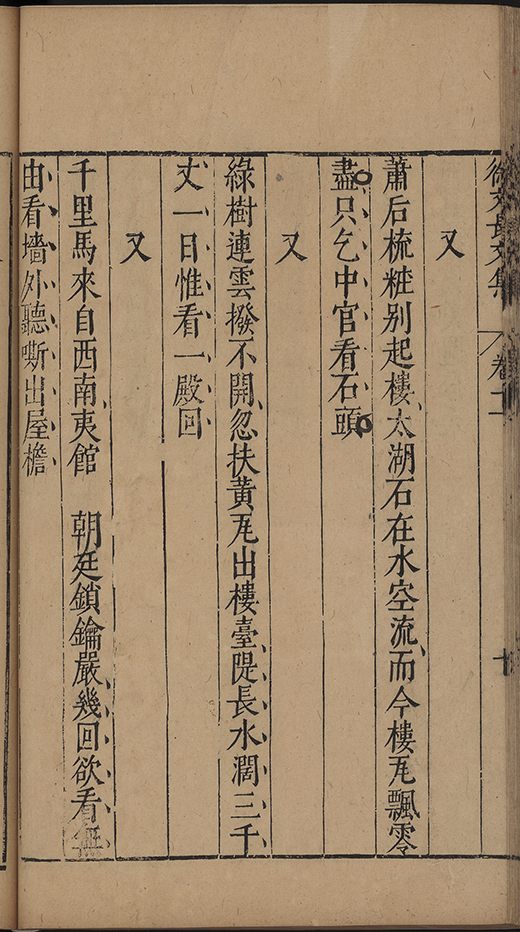 徐文長文集 卷十二 十
又
蕭后梳粧别起樓太湖石在水空流而今樓瓦飄零
盡只乞中官看石頭
又
綠樹連雲撥不開忽扶黃瓦出樓臺隄長水濶三千
丈一日惟看一殿回
又
千里馬來自西南夷館 朝廷鎖鑰嚴幾回欲看無
由看墻外聽嘶出屋檐